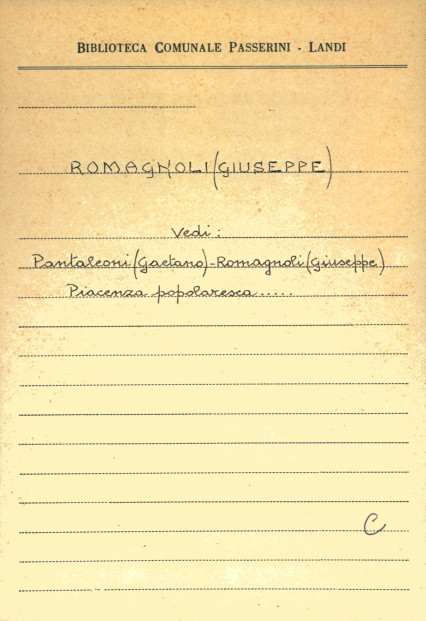 BIBLIOTECA COMUNALE PASSERINI - LANDI
ROMAGNOLI (GIUSEPPE)
Vedi:
Pantaleoni (Gaetano) - Romagnoli (Giuseppe)
Piacenza popolaresca.....
C